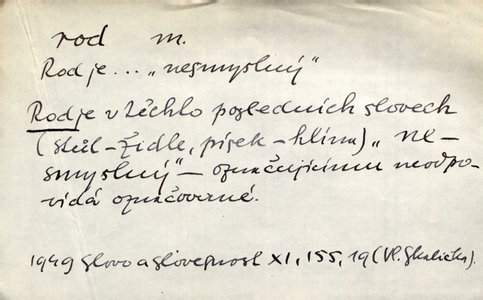 rod m.
Rod je... „nesmyslný"
Rod je v těchto posledních slovech
(stůl – židle, písek – hlína) „ne-
smyslný" – označujícímu neodpo-
vídá označované.
1949 Slovo a slovesnost XI, 155, 19 (Vl. Skalička).